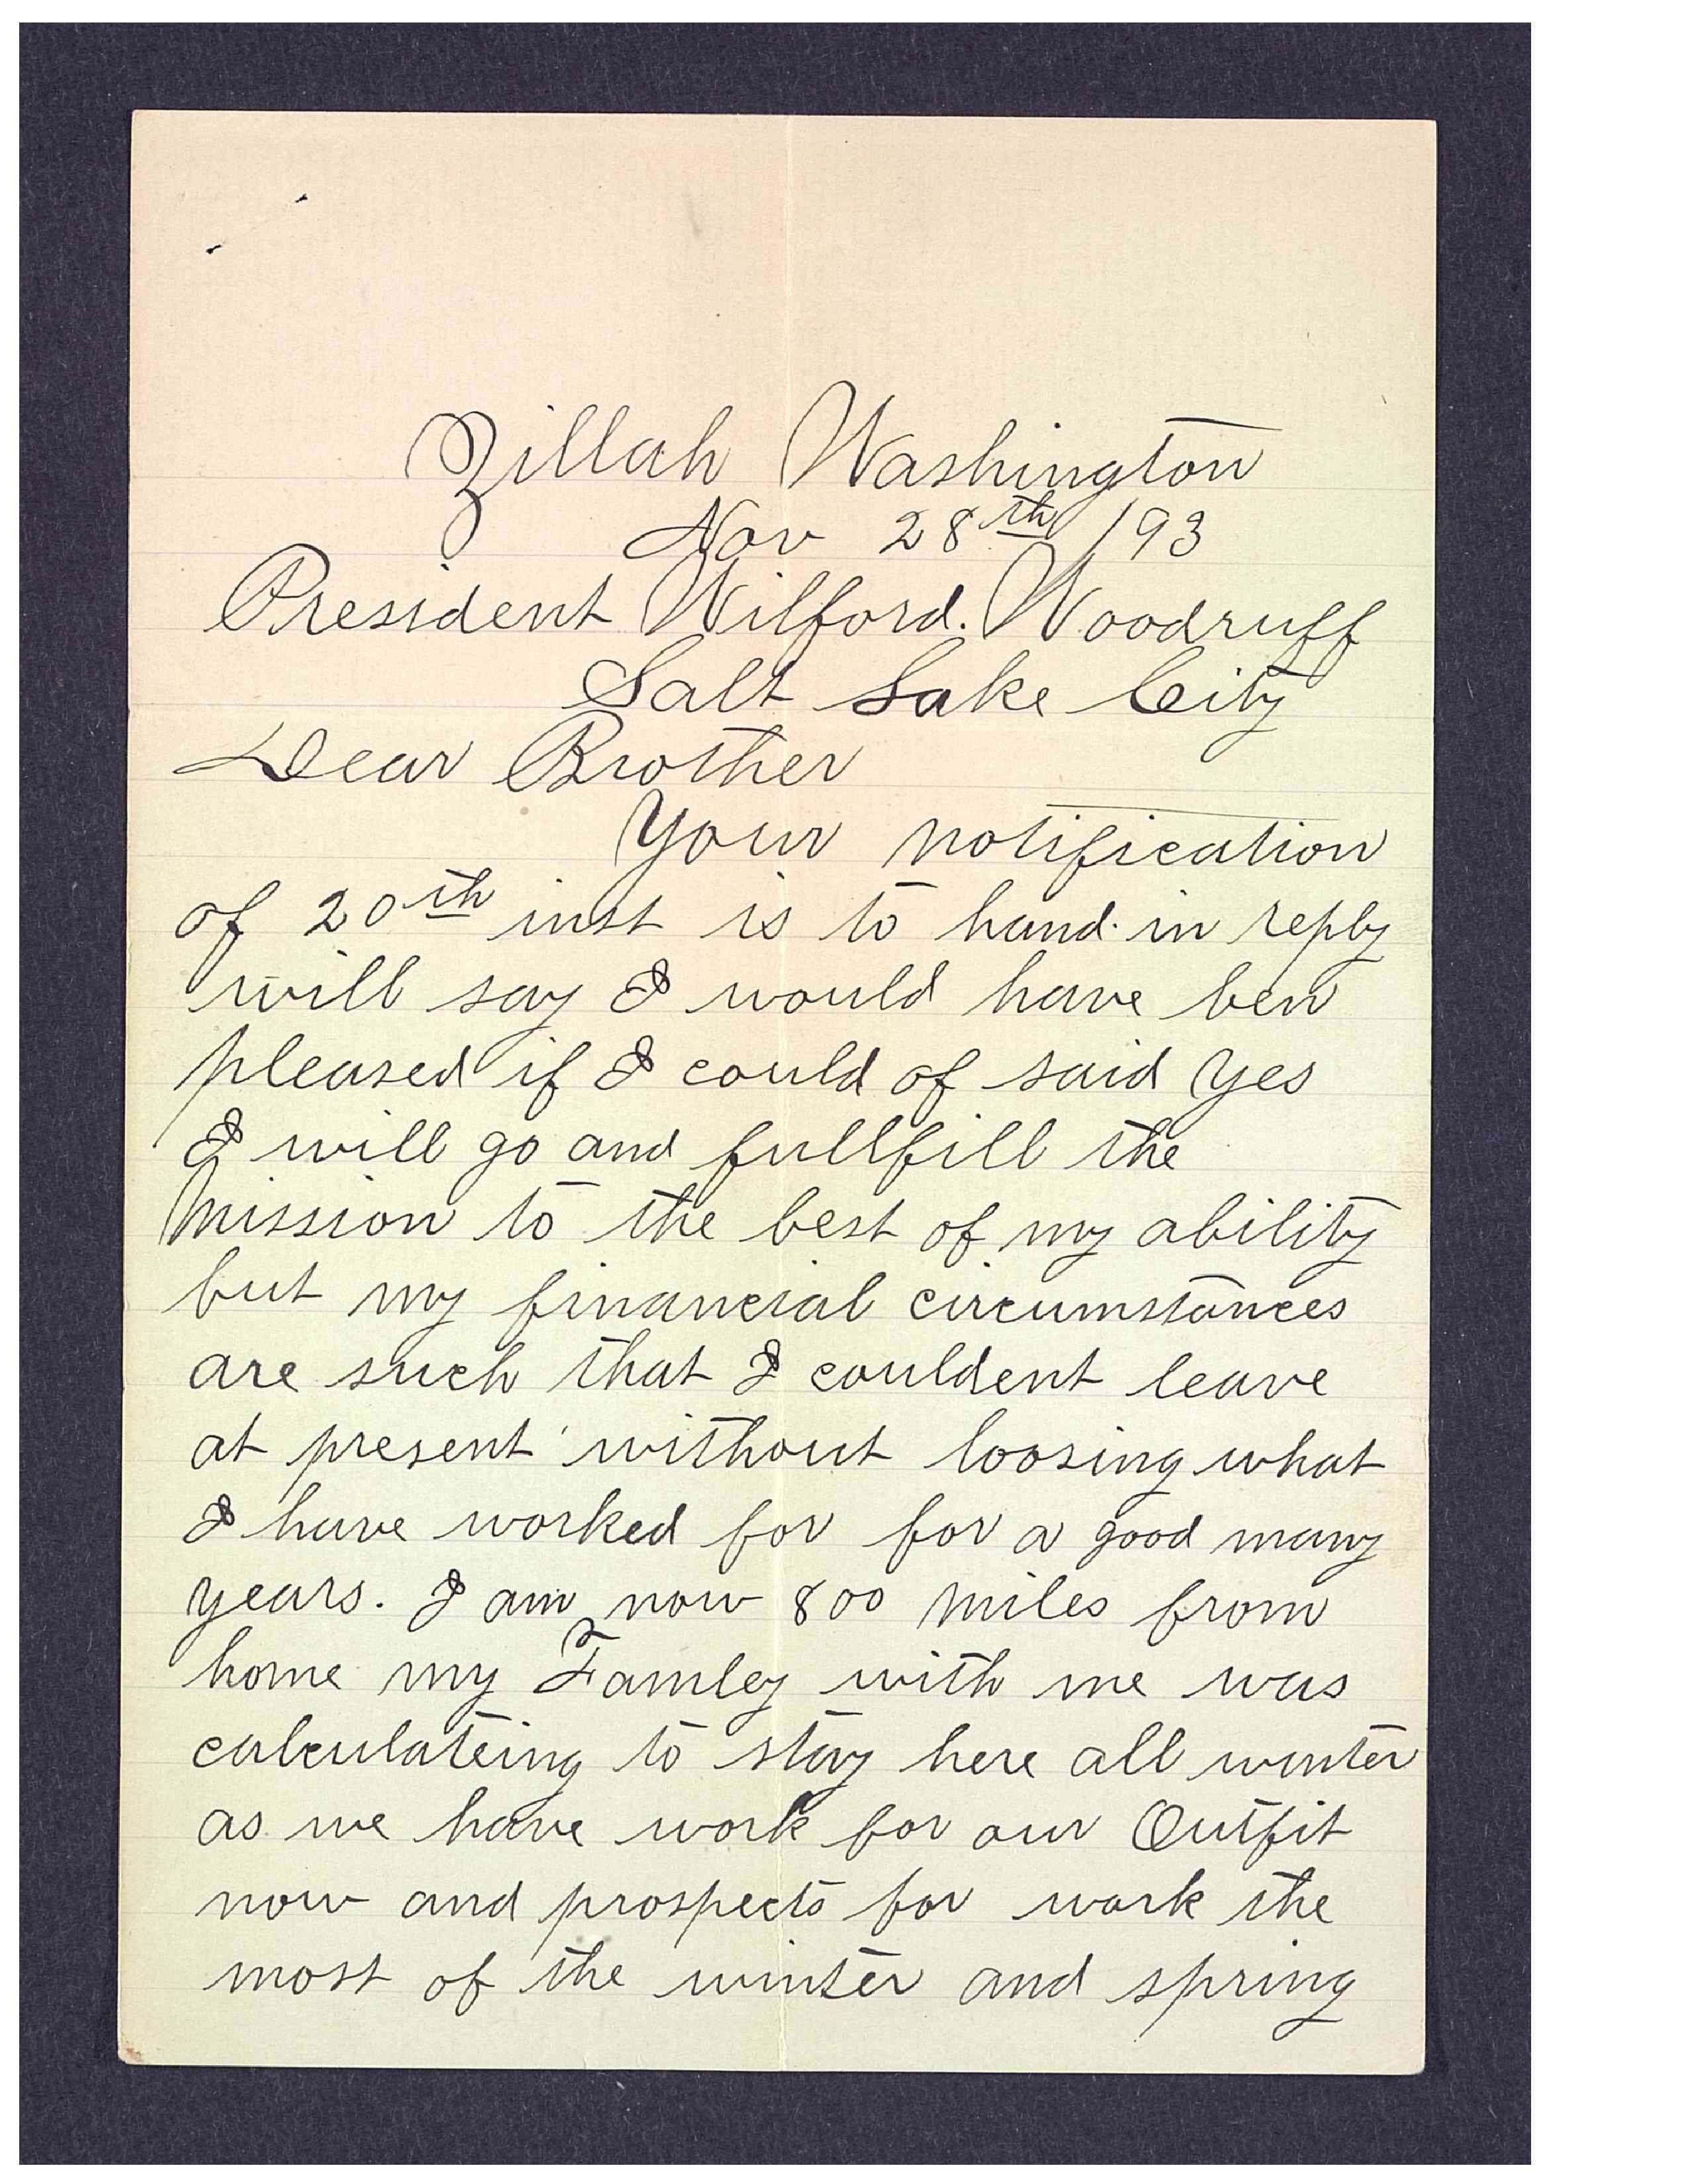 Zillah Washington
Nov 28th /93
President Wilford. Woodruff
Salt Lake City
Dear Brother
Your notification
of 20th inst is to hand. in reply
will say I would have ben
pleased if I could of said yes
I will go and fullfill the
Mission to the best of my ability
but my financial circumstances
are such that I couldent leave
at present without loosing what
I have worked for for a good many
years. I am now 800 miles from
home my Famley with me was
calculateing to stay here all winter
as we have work for our Outfit
now and prospects for work the
most of the winter and spring